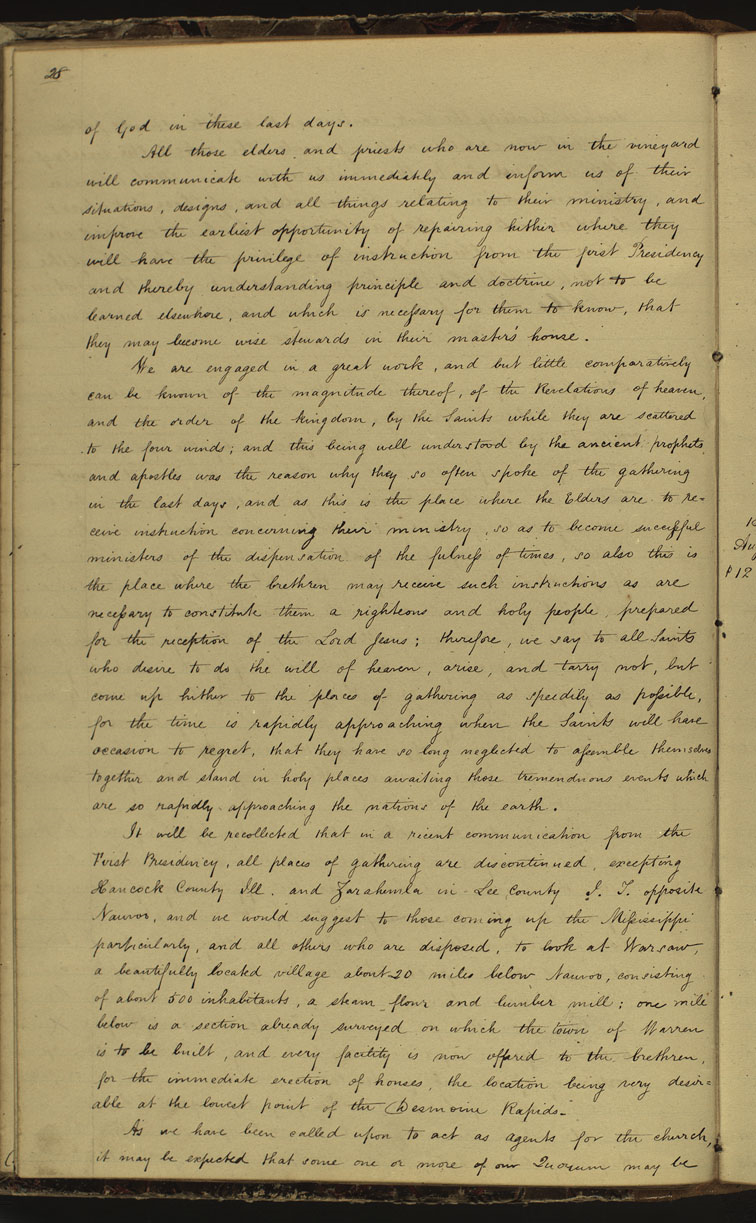 28
of God in these last days.
All those elders and priests who are now in the vineyard
will communicate with us immediately and inform us of their
situations, designs, and all things relating to their ministry, and
improve the earliest opportunity of repairing hither where they
will have the privilege of instruction from the first Presidency
and thereby understanding principle and doctrine, not to be
learned elsewhere, and which is necessary for them to know, that
they may become wise stewards in their masters' house.
We are engaged in a great work, and but little comparatively
can be known of the magnitude thereof, of the Revelations of heaven,
and the order of the kingdom, by the Saints while they are scattered
to the four winds; and this being well understood by the ancient prophets
and apostles was the reason why they so often spoke of the gathering
in the last days, and as this is the place where the Elders are to re=
ceive instruction concerning their ministry, so as to become successful
ministers of the dispensation of the fulness of times, so also this is
the place where the brethren may receive such instructions as are
necessary to constitute them a righteous and holy people, prepared
for the reception of the Lord Jesus; therefore, we say to all Saints
who desire to do the will of heaven, arise, and tarry not, but
come up hither to the places of gathering as speedily as possible,
for the time is rapidly approaching when the Saints will have
occasion to regret, that they have so long neglected to assemble themselves
together and stand in holy places awaiting those tremendous events which
are so rapidly approaching the nations of the earth.
It will be recollected that in a recent communication from the
First Presidency, all places of gathering are discontinued, excepting
Hancock County Ill. and Zarahemla in Lee county I. T. opposite
Nauvoo, and we would suggest to those coming up the Mississippi
particularly, and all others who are disposed, to look at Warsaw,
a beautifully located village about 20 miles below Nauvoo, consisting
of about 500 inhabitants, a steam flour and lumber mill; one mile
below is a section already surveyed on which the town of Warren
is to be built, and every facility is now offered to the brethren,
for the immediate erection of houses, the location being very desir=
able at the lowest point of the Desmoine Rapids-
As we have been called upon to act as agents for the church,
it may be expected that some one or more of our Quorum may be
Aug
P 12